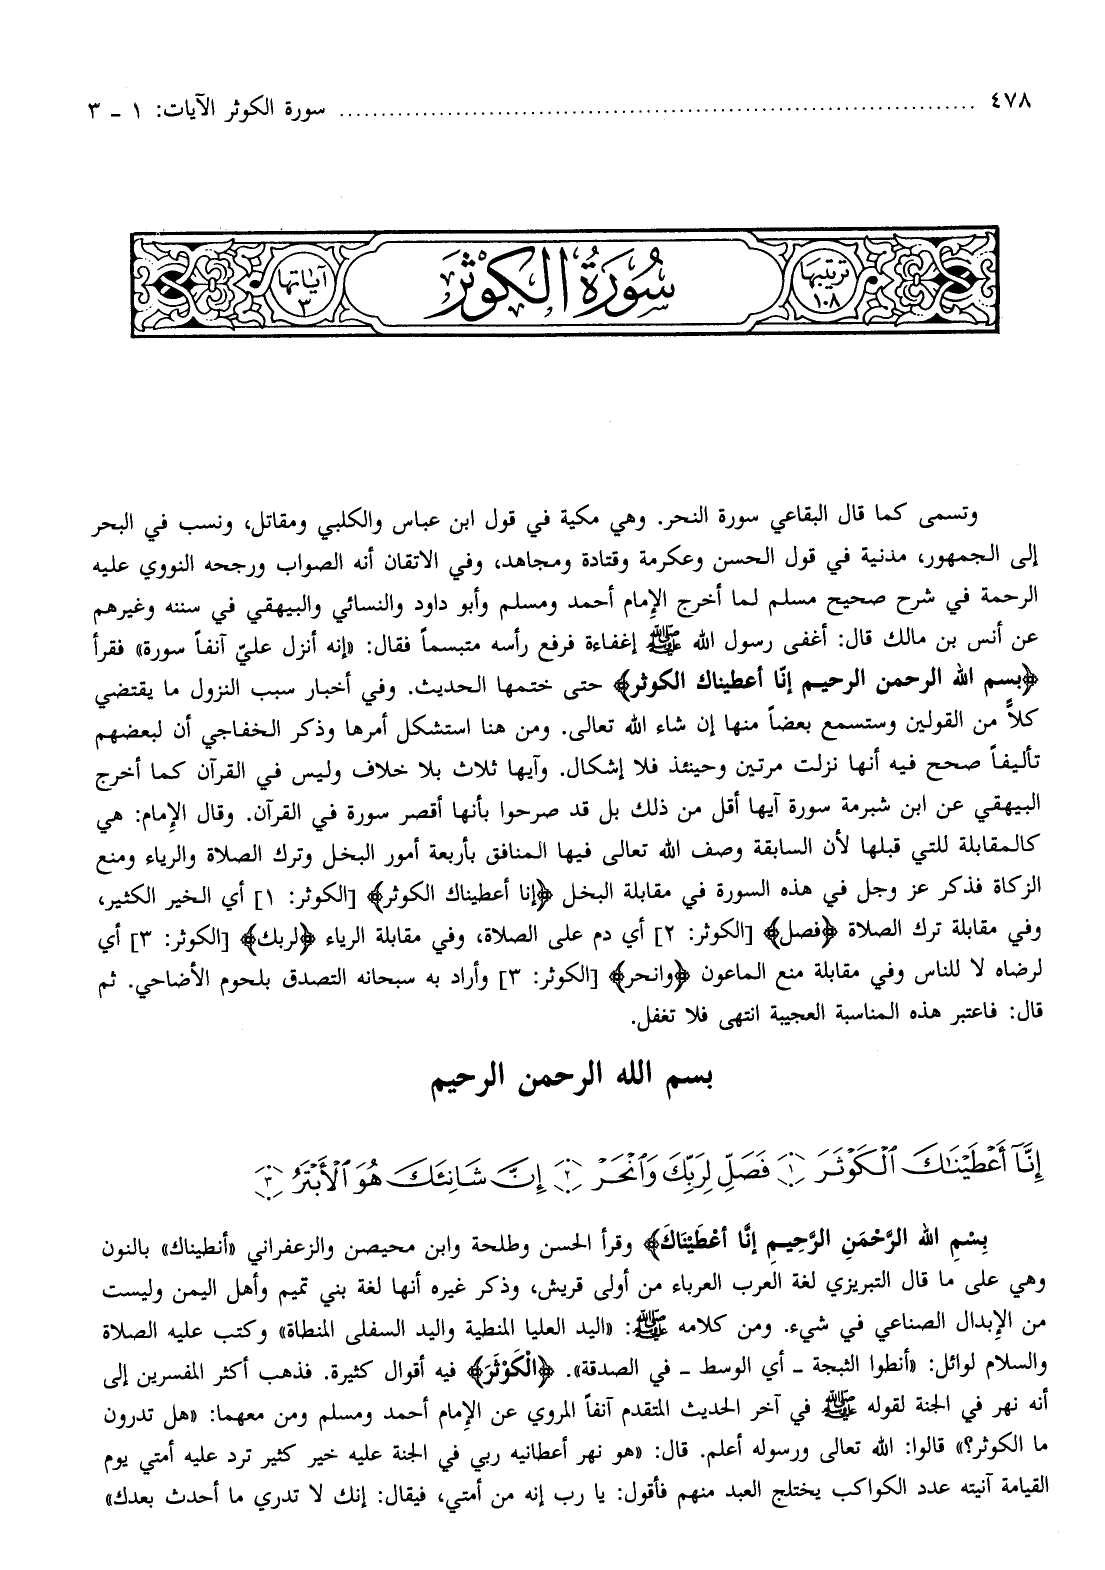 ٤٧٨ ........................................................ سورة الكوثر الآيات: ١ ـ ٣
ترتيبها ١٠٨ سُورَةُ الكَوْثَر آياتها ٣
وتسمى كما قال البقاعي سورة النحر. وهي مكية في قول ابن عباس والكلبي ومقاتل، ونسب في البحر
إلى الجمهور، مدنية في قول الحسن وعكرمة وقتادة ومجاهد، وفي الاتقان أنه الصواب ورجحه النووي عليه
الرحمة في شرح صحيح مسلم لما أخرج الإمام أحمد ومسلم وأبو داود والنسائي والبيهقي في سننه وغيرهم
عن أنس بن مالك قال: أغفى رسول الله ﷺ إغفاءة فرفع رأسه متبسماً فقال: «إنه أنزل عليّ آنفاً سورة» فقرأ
﴿بسم الله الرحمن الرحيم إنّا أعطيناك الكوثر﴾ حتى ختمها الحديث. وفي أخبار سبب النزول ما يقتضي
كلاًّ من القولين وستسمع بعضاً منها إن شاء الله تعالى. ومن هنا استشكل أمرها وذكر الخفاجي أن لبعضهم
تأليفاً صحح فيه أنها نزلت مرتين وحينئذ فلا إشكال. وآيها ثلاث بلا خلاف وليس في القرآن كما أخرج
البيهقي عن ابن شبرمة سورة آيها أقل من ذلك بل قد صرحوا بأنها أقصر سورة في القرآن. وقال الإمام: هي
كالمقابلة للتي قبلها لأن السابقة وصف الله تعالى فيها المنافق بأربعة أمور البخل وترك الصلاة والرياء ومنع
الزكاة فذكر عز وجل في هذه السورة في مقابلة البخل ﴿إنا أعطيناك الكوثر﴾ [الكوثر: ١] أي الخير الكثير،
وفي مقابلة ترك الصلاة ﴿فصل﴾ [الكوثر: ٢] أي دم على الصلاة، وفي مقابلة الرياء ﴿لربك﴾ [الكوثر: ٣] أي
لرضاه لا للناس وفي مقابلة منع الماعون ﴿وانحر﴾ [الكوثر: ٣] وأراد به سبحانه التصدق بلحوم الأضاحي. ثم
قال: فاعتبر هذه المناسبة العجيبة انتهى فلا تغفل.
بسم الله الرحمن الرحيم
إِنَّآ أَعْطَيْنَٰكَ ٱلْكَوْثَرَ ١ فَصَلِّ لِرَبِّكَ وَٱنْحَرْ ٢ إِنَّ شَانِئَكَ هُوَ ٱلْأَبْتَرُ ٣
بِسْمِ الله الرَّحْمَنِ الرَّحِيمِ إِنَّا أَعْطَيْنَاكَ﴾ وقرأ الحسن وطلحة وابن محيصن والزعفراني «أنطيناك» بالنون
وهي على ما قال التبريزي لغة العرب العرباء من أولى قريش، وذكر غيره أنها لغة بني تميم وأهل اليمن وليست
من الإبدال الصناعي في شيء. ومن كلامه ﷺ: «اليد العليا المنطية واليد السفلى المنطاة» وكتب عليه الصلاة
والسلام لوائل: «أنطوا الثبجة ـ أي الوسط ـ في الصدقة». ﴿الْكَوْثَرَ﴾ فيه أقوال كثيرة. فذهب أكثر المفسرين إلى
أنه نهر في الجنة لقوله ﷺ في آخر الحديث المتقدم آنفاً المروي عن الإمام أحمد ومسلم ومن معهما: «هل تدرون
ما الكوثر؟» قالوا: الله تعالى ورسوله أعلم. قال: «هو نهر أعطانيه ربي في الجنة عليه خير كثير ترد عليه أمتي يوم
القيامة آنيته عدد الكواكب يختلج العبد منهم فأقول: يا رب إنه من أمتي، فيقال: إنك لا تدري ما أحدث بعدك»